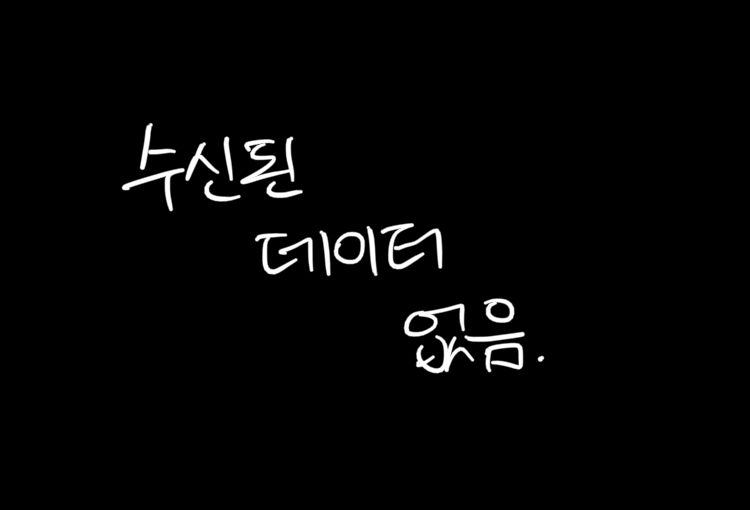 수신된
데이터
없음.